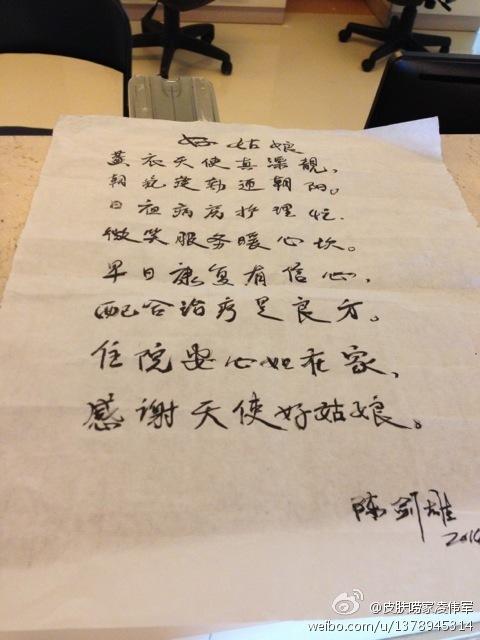 好姑娘
蓝衣天使真漂靓,
朝 勤迎朝阳。
日夜病房护理忙.
微笑服务暖心坎。
早日康复有信心,
配合治疗是良方。
住院安心如在家,
感谢天使好姑娘。
陈剑雄
@皮肤唠家凌伟军
weibo.com/u/1378945314